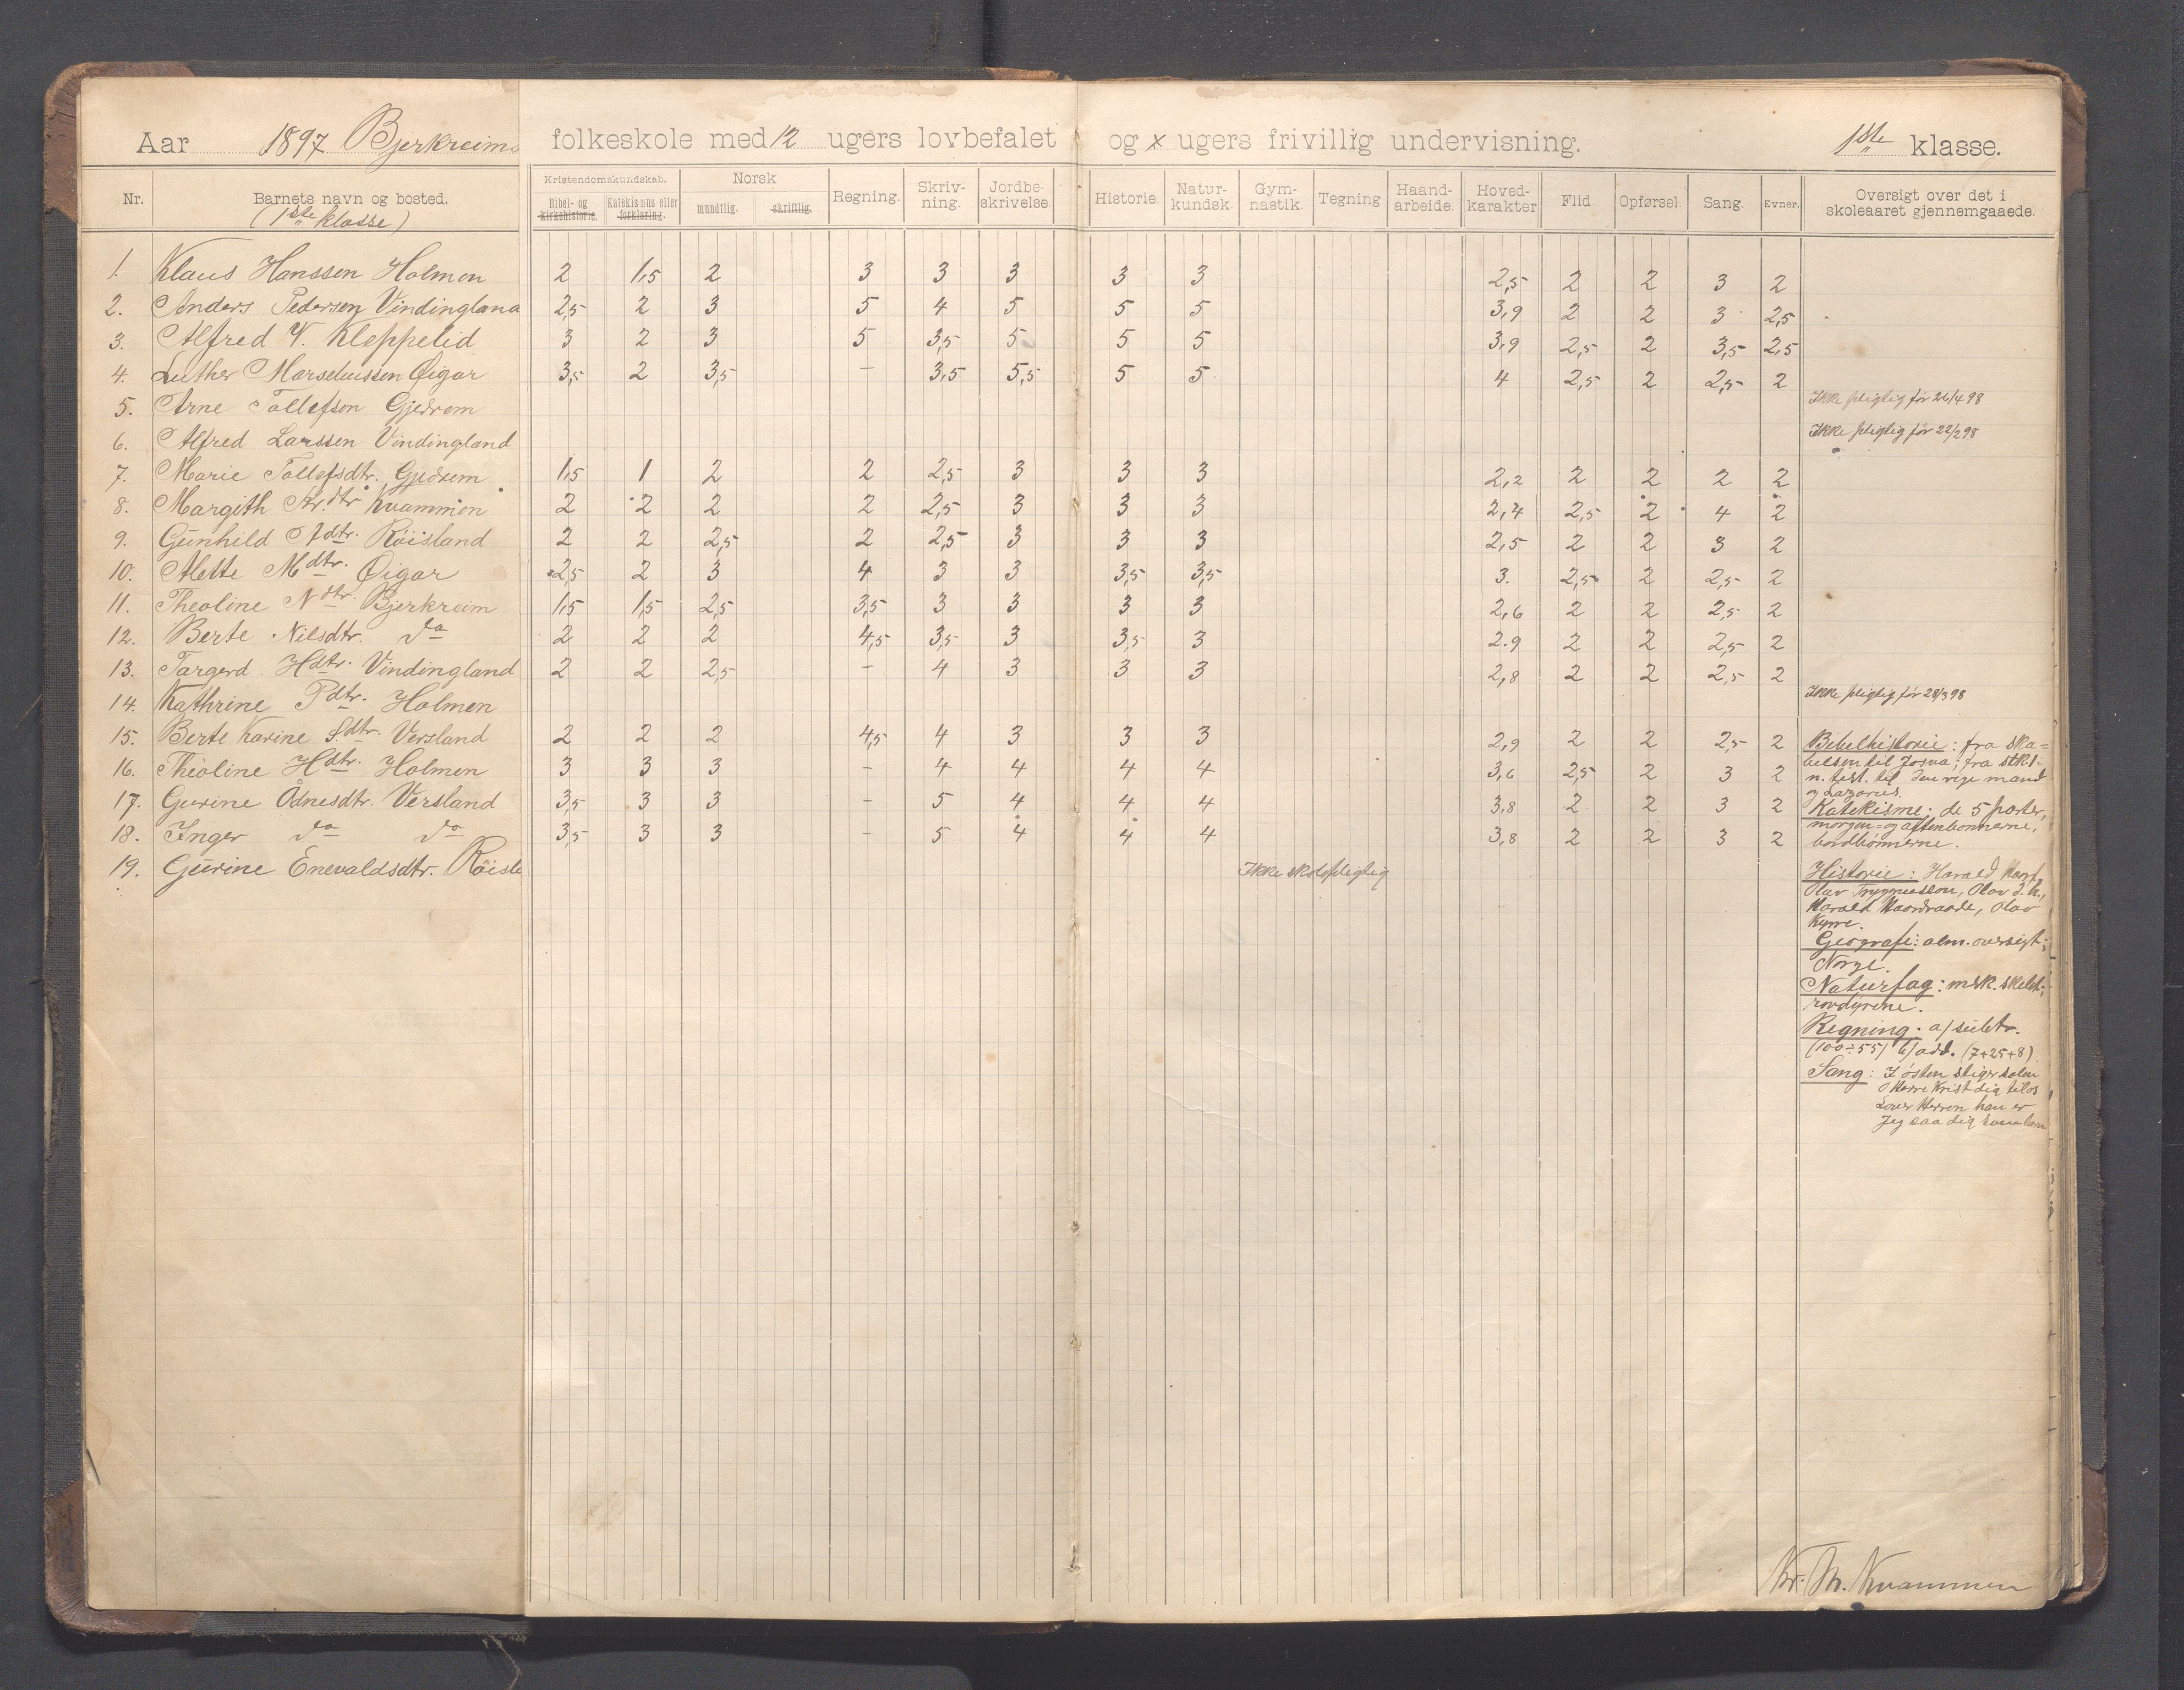 Aar 1897 Bjerkreims folkeskole med 12 ugers lovbefalet og x ugers frivillig undervisning. 1ste klasse.
Nr. Barnets navn og bosted. (1ste klasse) Kristendomskundskab. Bibel- og kirkehistorie. Katekismus eller forklaring. Norsk mundtlig. skriftlig. Regning. Skriv-ning. Jordbe-skrivelse. Historie. Natur-kundsk. Gym-nastik. Tegning Haand-arbeide. Hoved-karakter Flid. Opførsel. Sang. Evner. Oversigt over det i skoleaaret gjennemgaaede.
1. Klaus Hanssen Holmen 2 1,5 2 3 3 3 3 3 2,5 2 2 3 2
2. Anders Pedersen Vindingland 2,5 2 3 5 4 5 5 5 3,9 2 2 3 2,5
3. Alfred V. Kleppelid 3 2 3 5 3,5 5 5 5 3,9 2,5 2 3,5 2,5
4. Luther Marseliussen Øigar 3,5 2 3,5 – 3,5 5,5 5 5 4 2,5 2 2,5 2
5. Arne Tollefsen Gjedrem Ikke pligtig før 26/4 98
6. Alfred Larssen Vindingland Ikke pligtig før 22/2 98
7. Marie Tollefsdtr. Gjedrem 1,5 1 2 2 2,5 3 3 3 2,2 2 2 2 2
8. Margith Kr.dtr Kvammen 2 2 2 2 2,5 3 3 3 2,4 2,5 2 4 2
9. Gunhild Adtr. Röisland 2 2 2,5 2 2,5 3 3 3 2,5 2 2 3 2
10. Alette Mdtr. Øigar 2,5 2 3 4 3 3 3,5 3,5 3. 2,5 2 2,5 2
11. Theoline Ndtr. Bjerkreim 1,5 1,5 2,5 3,5 3 3 3 3 2,6 2 2 2,5 2
12. Berte Nilsdtr. do 2 2 2 4,5 3,5 3 3,5 3 2.9 2 2 2,5 2
13. Targerd Hdtr. Vindingland 2 2 2,5 – 4 3 3 3 2,8 2 2 2,5 2
14. Kathrine Pdtr. Holmen Ikke pligtig før 28/3 98
15. Berte Karine Sdtr. Versland 2 2 2 4,5 4 3 3 3 2,9 2 2 2,5 2
16. Theoline Hdtr. Holmen 3 3 3 – 4 4 4 4 3,6 2,5 2 3 2
17. Gurine Ådnesdtr. Versland 3,5 3 3 – 5 4 4 4 3,8 2 2 3 2
18. Inger do do 3,5 3 3 – 5 4 4 4 3,8 2 2 3 2
19. Gurine Enevaldsdtr. Röisl Ikke skolepligtig
Bibelhistorie: fra ska=
belsen til Josva; fra stk. 1
n. test. til den rige mand
og Lazarus.
Katekisme: de 5 parter,
morgen- og aftenbønnerne,
bordbønnerne.
Historie: Harald Haarf.
Olav Tryggvessøn, Olav d. h.,
Harald Haardraade, Olav
Kyrre.
Geografi: alm. oversigt;
Norge.
Naturfag: msk. skelet;
rovdyrene.
Regning: a) subtr.
(100÷55) b) add. (7+25+8)
Sang: I østen stiger solen
O Herre Krist dig til os
Lover Herren han er
Jeg saa dig som barn
Kr. Th. Kvammen